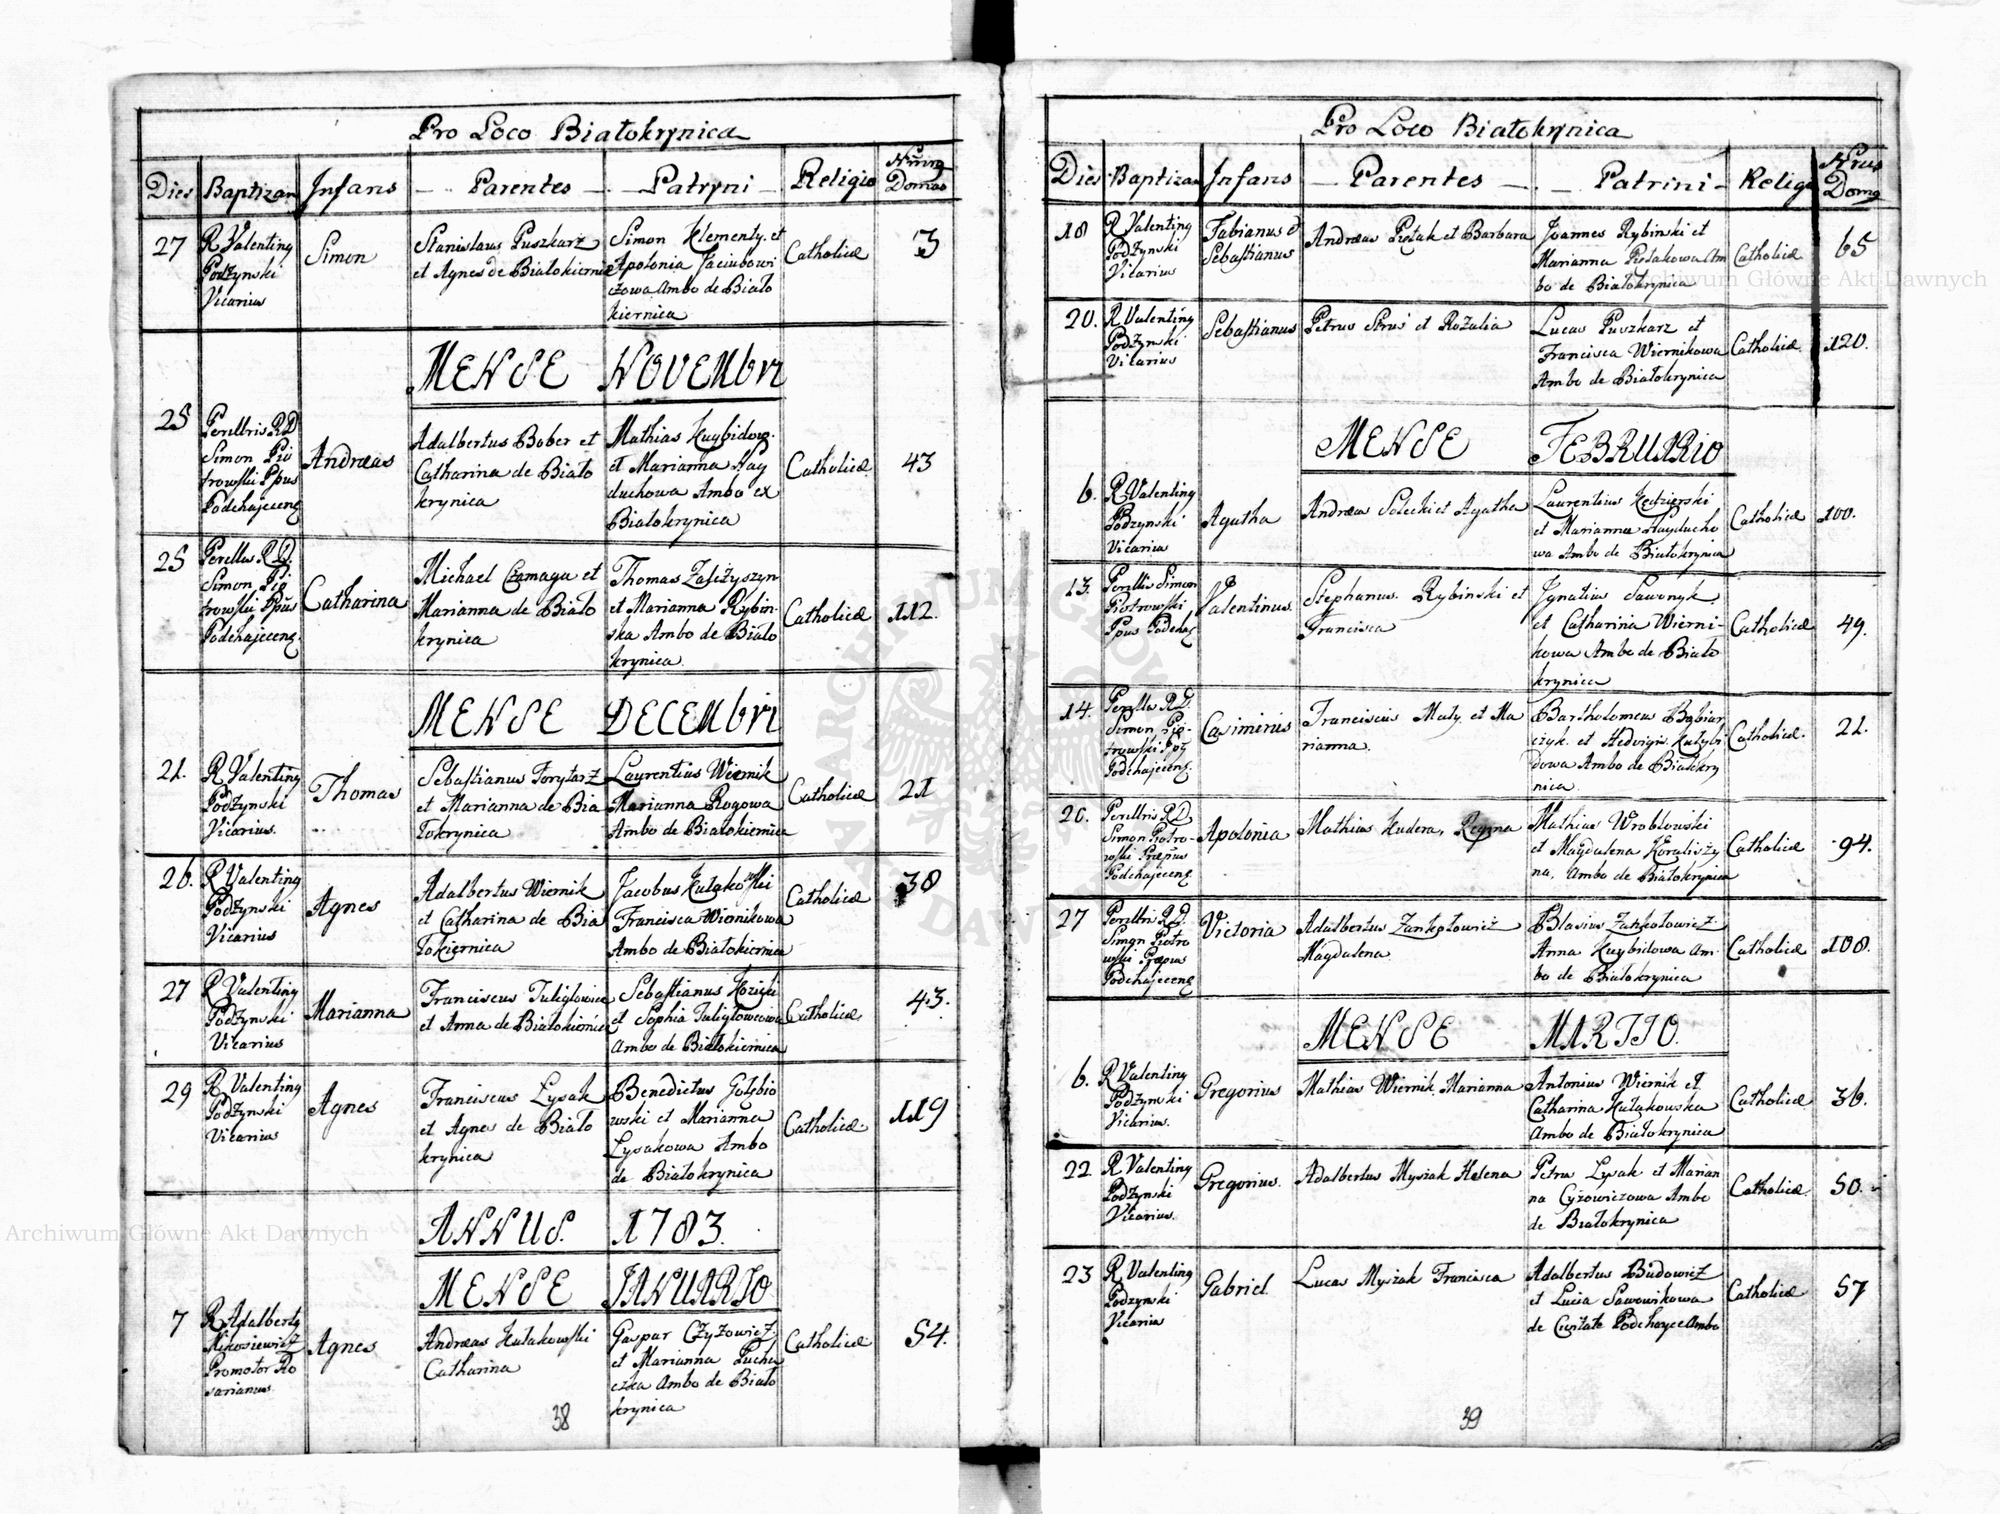 Pro Loco Białokrynica
Dies Baptizan Infans Parentes Patryni Religio Num Domus
27
R Valenting
Podżynski
Vicarius
Simon
Stanislaus Puszkarz
et Agnes de Białokiernica
Simon Klementy. et
Apolonia Jaciubowi
czowa Ambo de Biało
kiernica
Catholicæ
3
MENSE NOVEMbri
25
Perillris RD
Simon Pio
trowski Ppus
Podchajeceng
Andræas
Adalbertus Bober et
Catharina de Biało
krynica
Mathias Kuybidow.
et Marianna Hay
duchowa Ambo ex
Białokrynica
Catholicæ
43
25
Perillus R D.
Simon Pio
trowski Ppus
Podchajeceng.
Catharina
Michael Czamaga et
Marianna de Biało
krynica
Thomas Zależyszyn
et Marianna Rybin-
ska Ambo de Biało
krynica.
Catholicæ
112.
MENSE DECEMbri
21.
R Valenting
Podżynski
Vicarius.
Thomas
Sebastianus Torytarz
et Marianna de Bia
łokrynica
Laurentius Wiernik
Marianna Rogowa
Ambo de Białokiernica
Catholicæ
21
26.
R Valenting
Podżynski
Vicarius
Agnes
Adalbertus Wiernik
et Catharina de Bia
łokiernica
Jacobus Kułakowski
Francisca Wiernikowa
Ambo de Białokiernica
Catholicæ
38
27
R Valenting
Podżynski
Vicarius
Marianna
Franciscus Tuligłowicz
et Anna de Białokiernica
Sebastianus Kozicki
et Sophia Tuligłowcowa
Ambo de Białokiernica
Catholicæ.
43.
29
R Valenting
Podżynski
Vicarius
Agnes
Franciscus Lysak
et Agnes de Biało
krynica
Benedictus Gołębio
wski et Marianna
Lysakowa Ambo
de Białokrynica
Catholicæ.
119
ANNUS. 1783.
MENSE JANUARIO
7
R Adalbertg
Mikosiewicz
Promotor Ro
sarianus.
Agnes
Andræas Kułakowski
Catharina
Gaspar Czyżowicz
et Marianna Łucka
czka Ambo de Biało
krynica
Catholicæ
54.
38
Pro Loco Białokrynica
Dies Baptizan Infans Parentes Patrini Religi Nrus Domg
18
R Valenting
Podżynski
Vicarius
Fabianus &
Sebastianus
Andræas Pietak et Barbara
Joannes Rybinski et
Marianna Pietakowa Am
bo de Białokrynica
Catholicæ
65
20.
R Valenting
Podżynski
Vicarius
Sebastianus
Petrus Struś et Rozalia
Lucas Puszkarz et
Francisca Wiernikowa
Ambo de Białokrynica
Catholicæ.
120.
MENSE FEBRUARIO
6.
R Valenting
Podzynski
Vicarius
Agatha
Andræas Solecki et Agatha
Laurentius Kedzierski
et Marianna Hayducho
wa Ambo de Białokrynica
Catholicæ
100.
13.
Perillis Simon
Piotrowski
Ppus Podchag
Valentinus.
Stephanus. Rybinski et
Francisca
Ignatius Sawonyk
et Catharina Wierni-
kowa Ambo de Biało
krynica
Catholicæ
49.
14.
Perillus R D.
Simon Pio-
trowski Ppg
Podchajeceng.
Casimirus
Franciscus Mały. et Ma
rianna.
Bartholomeus Babiar
czyk. et Hedvigis Kułybi
dowa Ambo de Białokry
nica.
Catholicæ.
21.
26.
Perillris RD
Simon Piotro-
wski Præpus
Podchajeceng
Apolonia
Mathias Kudera, Regina
Mathias Wroblowski
et Magdalena Koraliszy
na, Ambo de Białokrynica
Catholicæ
94.
27
Perillri RD.
Simon Piotro
wski Præpus
Podchajeceng
Victoria
Adalbertus Zankołowicz
Magdalena.
Blasius Zankołowicz
Anna Kuybidowa Am-
bo de Białokrynica
Catholicæ
108.
MENSE MARTIO.
6.
R Valenting
Podżynski
Vicarius.
Gregorius
Mathias Wiernik, Marianna
Antonius Wiernik et
Catharina Kułakowska
Ambo de Białokrynica
Catholicæ
36.
22
R Valenting
Podżynski
Vicarius.
Gregorius.
Adalbertus Myszak Helena
Petrus Lysak et Marian
na Cyzowiczowa Ambo
de Białokrynica
Catholicæ.
50.
23
R Valenting
Podzynski
Vicarius
Gabriel.
Lucas Myszak Francisca
Adalbertus Budowicz
et Lucia Sawonikowa
de Civitate Podchayce Ambo
Catholicæ
57
39
Archiwum Główne Akt Dawnych
Archiwum Główne Akt Dawnych
ARCHIWUM GŁÓWNE AKT DAWNYCH